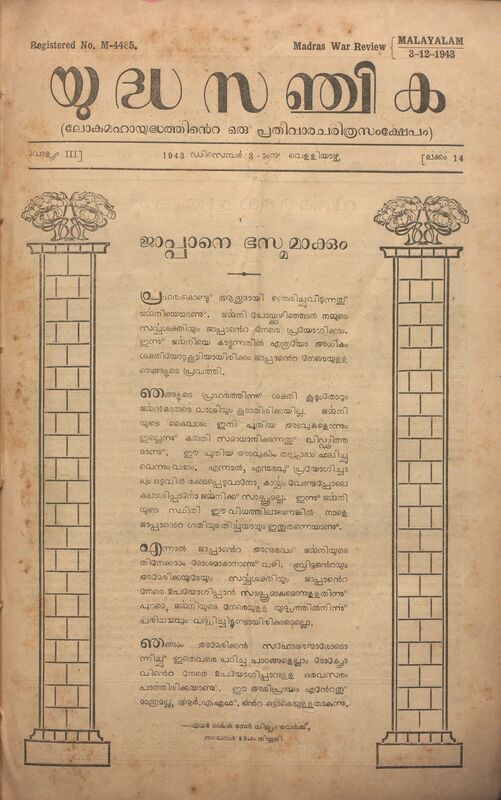 Registered No. M-4485.
Madras War Review { MALAYALAM
3-12-1943
യുദ്ധസഞ്ചിക
(ലോകമഹായുദ്ധത്തിൻെറ ഒരു പ്രതിവാരചരിത്രസംക്ഷേപം)
വോള്യം III] 1943 ഡിസെമ്പർ 3-ാംനു വെള്ളിയാഴ്ച [ലക്കം 14
ജാപ്പാനെ ഭസ്മമാക്കും
പ്രഹരംകൊണ്ടു് ആദ്യമായി തെരിച്ചുവീഴുന്നതു്
ജർമ്മനിയെയാണു്. ജർമ്മനി പോയ്ക്കഴിഞ്ഞാൽ നമ്മുടെ
സർവ്വശക്തിയും ജാപ്പാൻെറ നേരെ പ്രയോഗിക്കാം.
ഇന്നു് ജർമ്മനിയെ കാട്ടുന്നതിൽ എത്രയോ അധികം
ശക്തിയോടുകൂടിയായിരിക്കും ജാപ്പാൻെറ നേരെയുള്ള
ഞങ്ങളുടെ പ്രവൃത്തി.
ഞങ്ങളുടെ പ്രഹരത്തിന്നു് ശക്തി കൂടുംതോറും
ജർമ്മൻകാരുടെ വാശിയും കൂടാതിരിക്കയില്ല. ജർമ്മനി
യുടെ കൈവശം ഇനി പുതിയ അടവുകളൊന്നും
ഇല്ലെന്നു് കരുതി സമാധാനിക്കുന്നതു് വിഡ്ഢിത്ത
മാണു്. ഈ പുതിയ അടവുകൾ തല്ക്കാലം ഫലിച്ചു
വെന്നുംവരാം. എന്നാൽ, എന്തടവു് പ്രയോഗിച്ചാ
ലും ഒടുവിൽ രക്ഷപ്പെടുവാനോ, കാര്യം വേണ്ടപ്പോലെ
കലാശിപ്പാനോ ജർമ്മനിക്കു് സാദ്ധ്യമല്ല. ഇന്നു് ജർമ്മനി
യുടെ സ്ഥിതി ഈ വിധത്തിലാണെങ്കിൽ നാളെ
ജാപ്പാൻെറ ഗതിയും തീർച്ചയായും ഇതുതന്നെയാണു്.
എന്നാൽ ജാപ്പാൻെറ അനുഭവം ജർമ്മനിയുടെ
തിനേക്കാം മോശമാകാനാണു് വഴി. ബ്രിട്ടൻെറയും
അമേരിക്കയുടേയും സർവ്വശക്തിയും ജാപ്പാൻെറ
നേരെ ഉപയോഗിപ്പാൻ സാദ്ധ്യമാകുമെന്നുള്ളതിന്നു്
പുറമെ, ജർമ്മനിയുടെ നേരെയുള്ള യുദ്ധത്തിൽനിന്നു്
പരിചയവും വർദ്ധിച്ചിട്ടുണ്ടായിരിക്കുമല്ലൊ.
ഞങ്ങൾ അമേരിക്കൻ സഹോദരന്മാരോടൊ
ന്നിച്ചു് ഇതെവരെ പഠിച്ച പാഠങ്ങളെല്ലാം ടോക്യോ
വിൻെറ നേരെ ഉപയോഗിപ്പാനുള്ള ഒരവസരം
പാത്തിരിക്കയാണു്. ഈ അഭിപ്രായം എൻേറതു്
മാത്രമല്ല, ആർ.എ.എഫ്. ൻെറ ഒട്ടാകെയുള്ളതാകുന്നു.
നവമ്പർ തിയ്യതി.